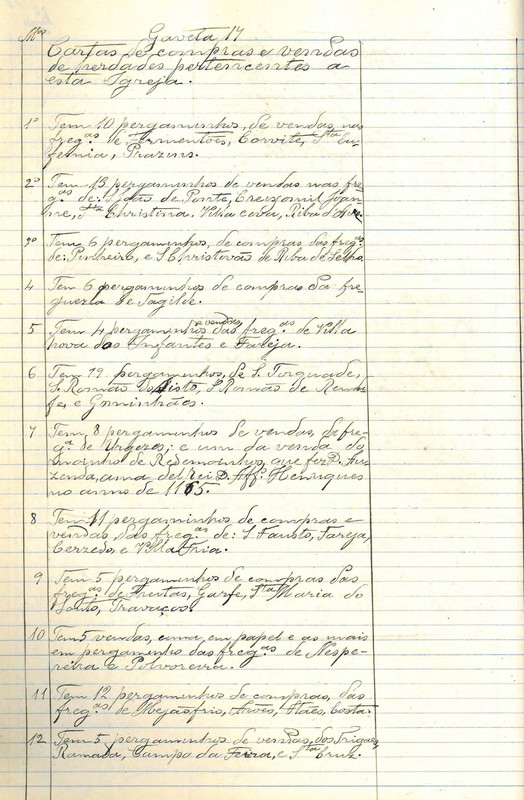 Gaveta 14
Mços
Cartas de compras e vendas
de herdades pertencentes a
esta Igreja.
1º Tem 10 pergaminhos, de vendas nas
fregas de Fermentões, Corvite, Sta Eu-
femia, Prazins.
2º Tem 13 pergaminhos de vendas nas fre-
gas de: S. João de Ponte, Creixomil, Joan-
ne, Sta Christina, Villa cova, Riba d'Ave
3º Tem 6 pergaminhos, de compras das fregas
de: Pinheiro, e S. Christovão de Riba de Selho
4 Tem 6 pergaminhos de compras da fre-
guezia de Tagilde.
5 Tem 4 pergaminhos de vendas das fregas de Villa
nova dos Infantes e Fareja.
6 Tem 19 pergaminhos, de S. Torquade,
S. Romão de S. Romão de
fe, e Gominhães.
7 Tem 8 pergaminhos de vendas, da fre-
ga de Urgezes; e um da venda do
moinho de Redemoinhos, que fez D.
ama del Rei D. Affº Henriques
no anno de 1165.
8 Tem 11 pergaminhos de compras e
vendas, das fregas de: S. Fausto, Fareja,
Cerzedo, e Villa Fria.
9 Tem 5 pergaminhos de compras das
fregas de Freitas, Garfe, Sta Maria do
Souto, Travaços.
10 Tem 5 vendas, uma, em papel e as mais
em pergaminho das fregas de Nespe-
reira e Polvoreira.
11 Tem 12 pergaminhos de compras, das
fregas de Mejasfris, Costa.
12 Tem 5 pergaminhos de vendas, dos Trigaes,
Ramada, Campo da Feira, e Sta Cruz.